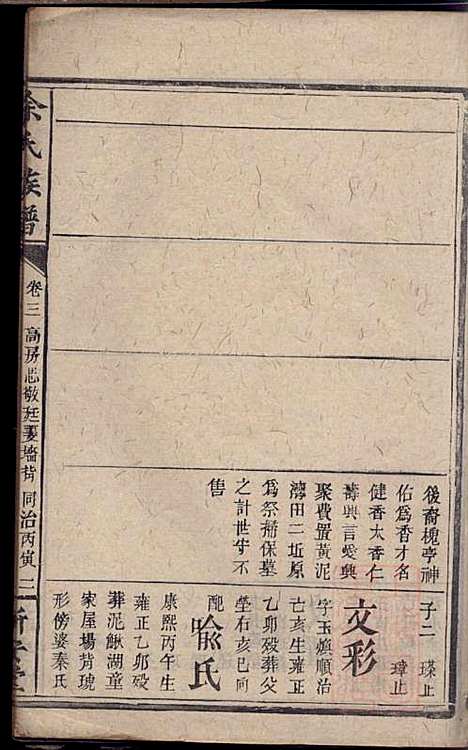 後裔槐亭神
佑為香才名
健香太香仁
壽興言愛興
聚費置黃泥
灣田二坵原
為祭掃保墓
之計世守不
售
子二 瑛止
璋止
文彩
字玉 順治
己亥生雍正
乙卯歿葬父
塋右亥巳向
配
喩氏
康熙丙午生
雍正乙卯歿
葬泥鰍湖童
家屋場背琥
形傍婆秦氏
氏族譜
卷三 高房思敬廷 墻背 同治丙寅 二